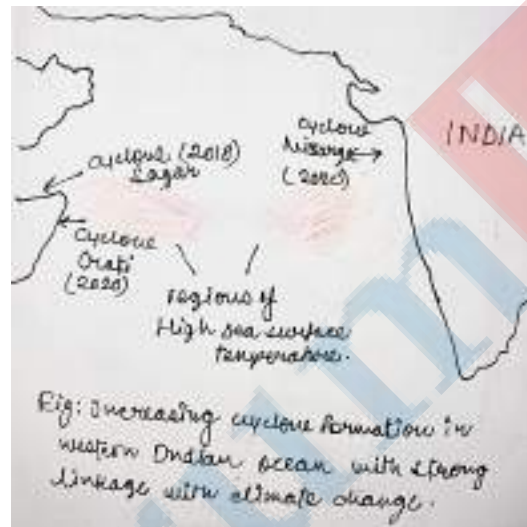 INDIA
cyclone
Nisarga
(2020)
cyclone (2018)
Sagar
cyclone
(2020)
regions of
High sea surface
temperature.
Fig: Increasing cyclone formation in
western Indian ocean with strong
linkage with climate change.